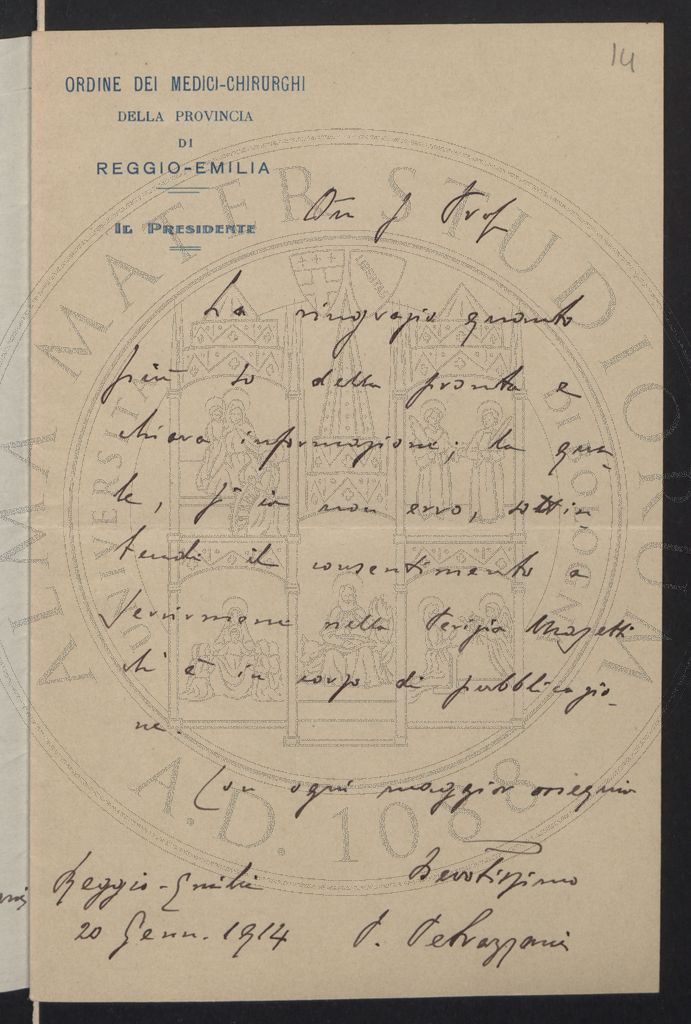 14
ORDINE DEI MEDICI-CHIRURGHI
DELLA PROVINCIA
DI
REGGIO-EMILIA
IL PRESIDENTE
On Prof
La ringrazio quanto
più so della pronta e
chiara informazione; la qua-
le, s'io non erro, sottin-
tende il consentimento a
servirmene nella Perizia
ch'è in corso di pubblicazio-
ne.
Con ogni maggior ossequio
Devotissimo
Reggio-Emilia
20 Genn. 1914
P. Petrazzani
ALMA MATER STUDIORUM
UNIVERSITÀ DI BOLOGNA
A.D. 1088